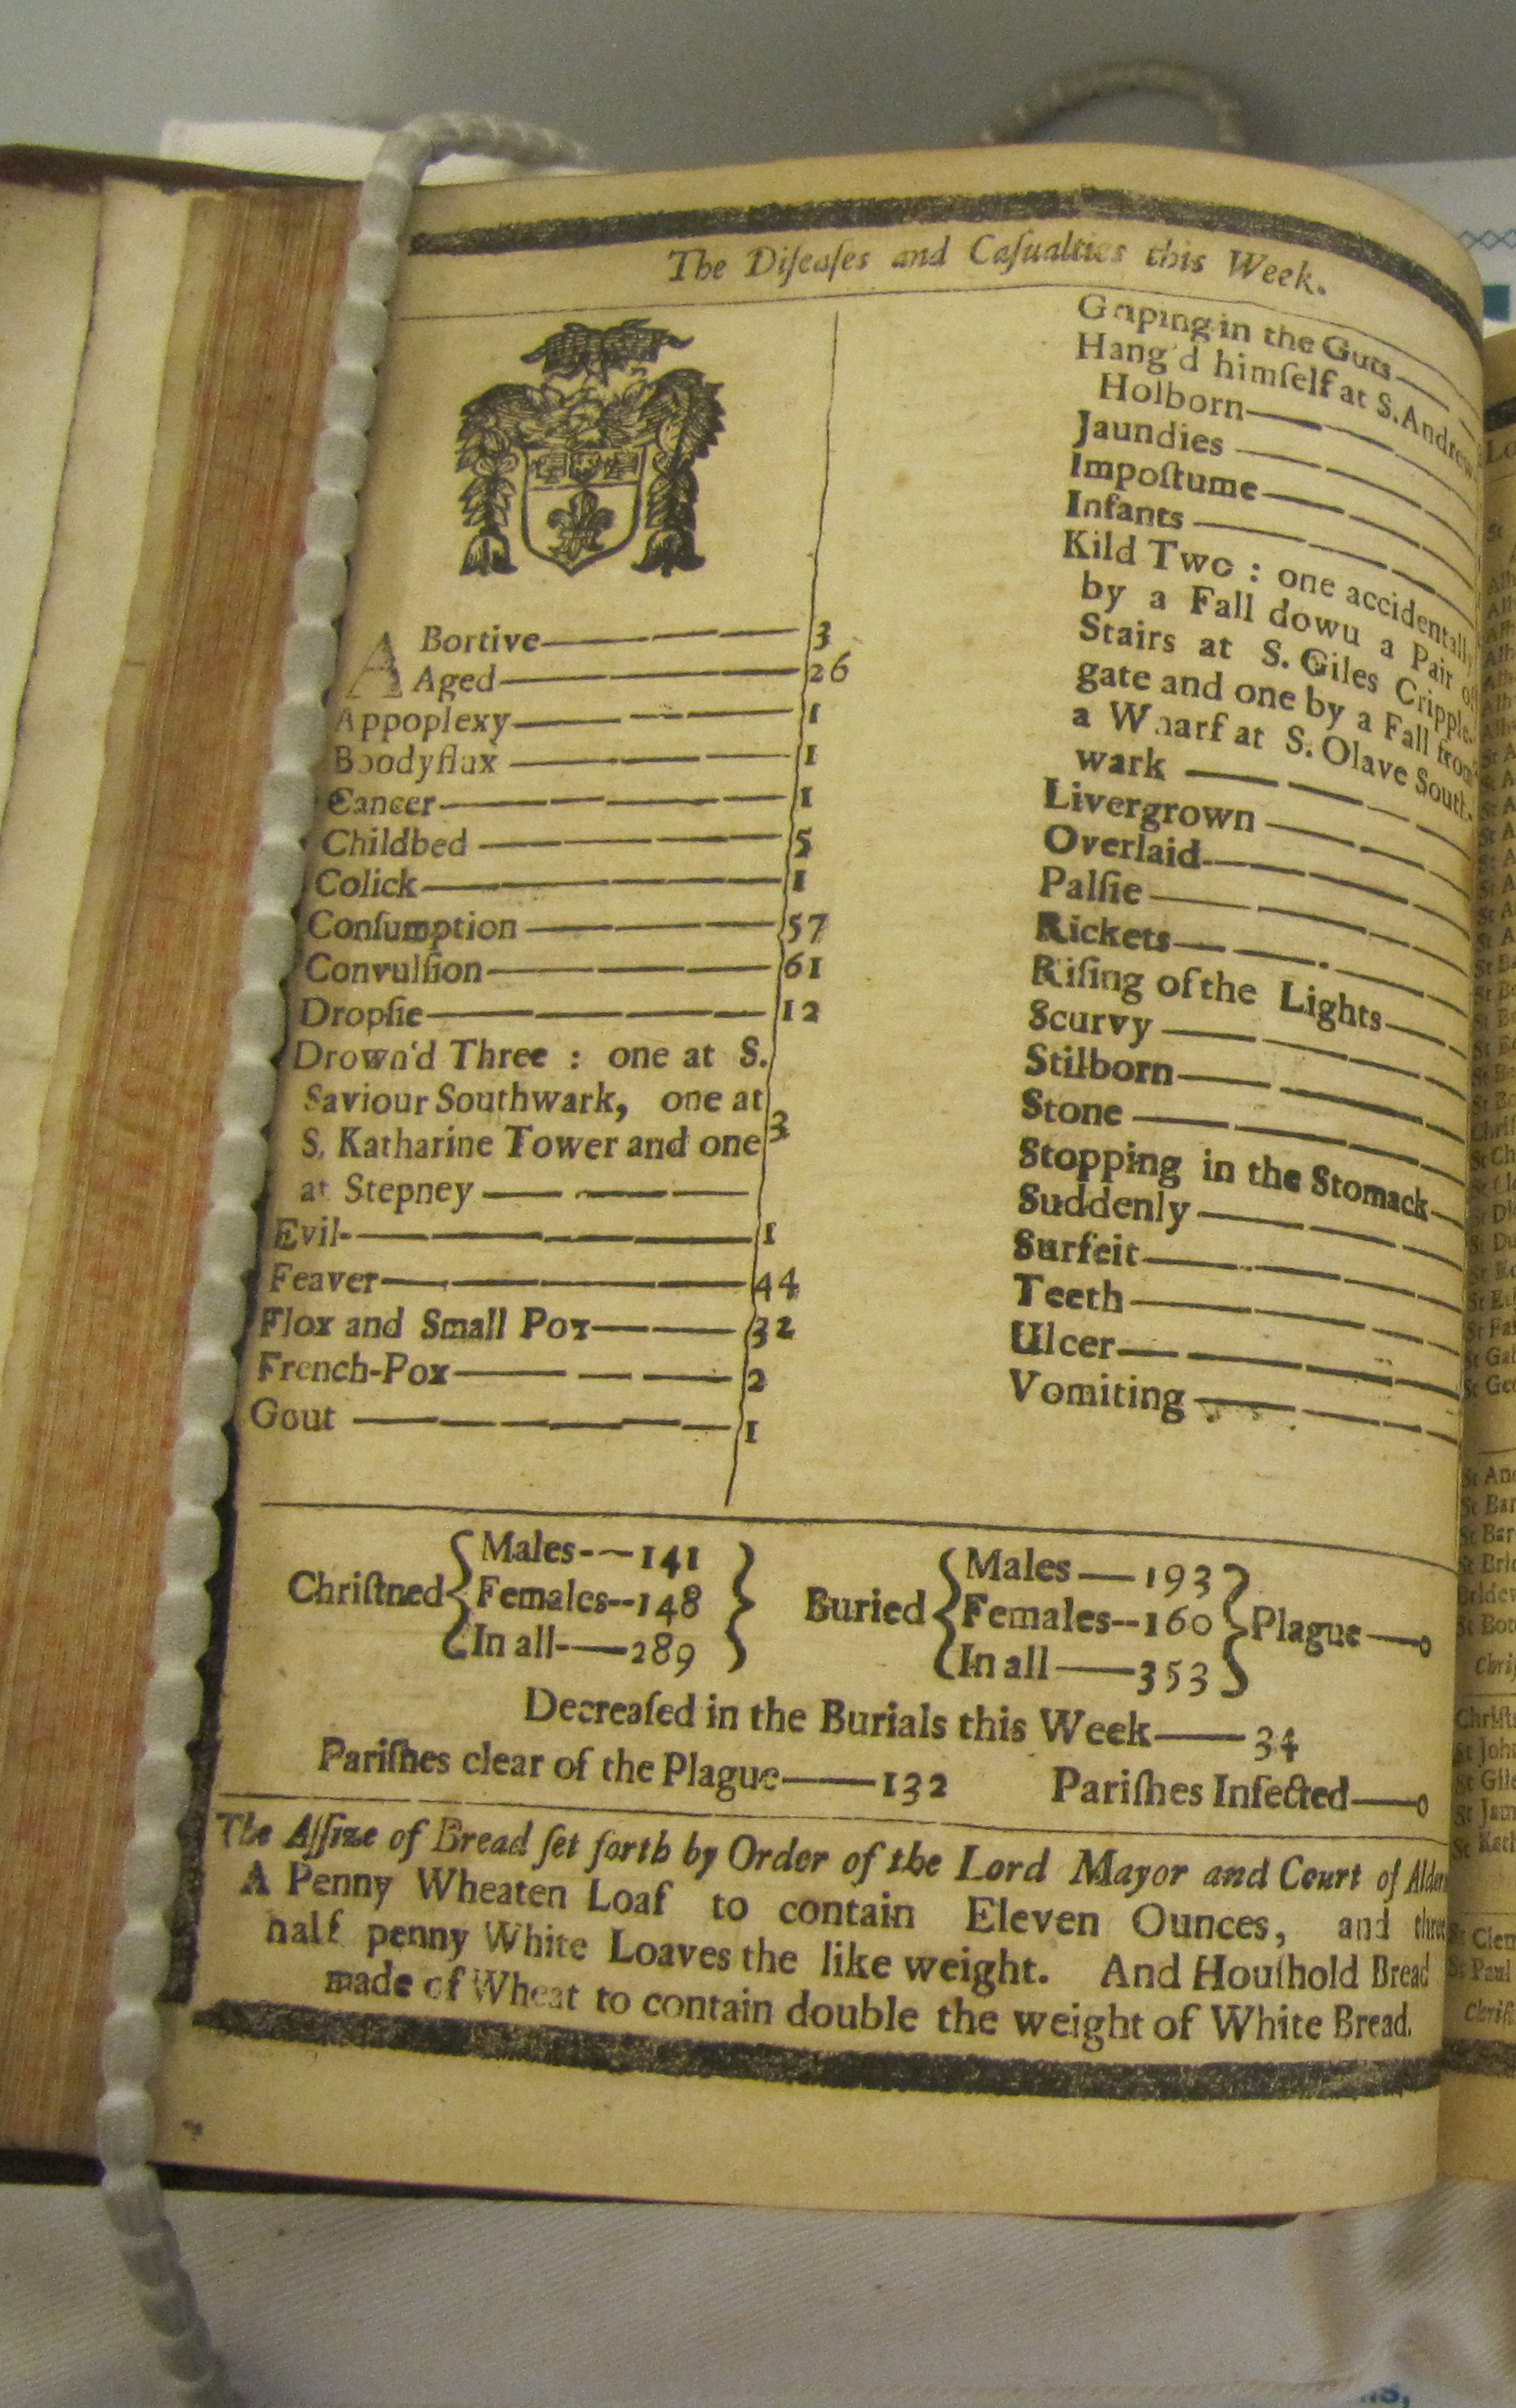 The Diſeaſes and Caſualties this Week.
A Bortive 3
Aged 26
Appoplexy 1
Boodyflux 1
Cancer 1
Childbed 5
Colick 1
Conſumption 57
Convulſion 61
Dropſie 12
Drown'd Three : one at S.
Saviour Southwark, one at
S. Katharine Tower and one 3
at Stepney
Evil 1
Feaver 44
Flox and Small Pox 32
French-Pox 2
Gout 1
Griping in the Guts
Hang'd himſelf at S. Andrew
Holborn
Jaundies
Impoſtume
Infants
Kild Two : one accidentally
by a Fall dowu a Pair of
Stairs at S. Giles Cripple-
gate and one by a Fall from
a Wharf at S. Olave South-
wark
Livergrown
Overlaid
Palſie
Rickets
Riſing of the Lights
Scurvy
Stilborn
Stone
Stopping in the Stomack
Suddenly
Surfeit
Teeth
Ulcer
Vomiting
Chriſtned { Males--141 Females--148 In all--289 }
Buried { Males--193 Females--160 In all--353 } Plague--0
Decreaſed in the Burials this Week--34
Pariſhes clear of the Plague--132 Pariſhes Infected--0
The Aſſize of Bread ſet forth by Order of the Lord Mayor and Court of
A Penny Wheaten Loaf to contain Eleven Ounces, and three
half penny White Loaves the like weight. And Houſhold Bread
made of Wheat to contain double the weight of White Bread.